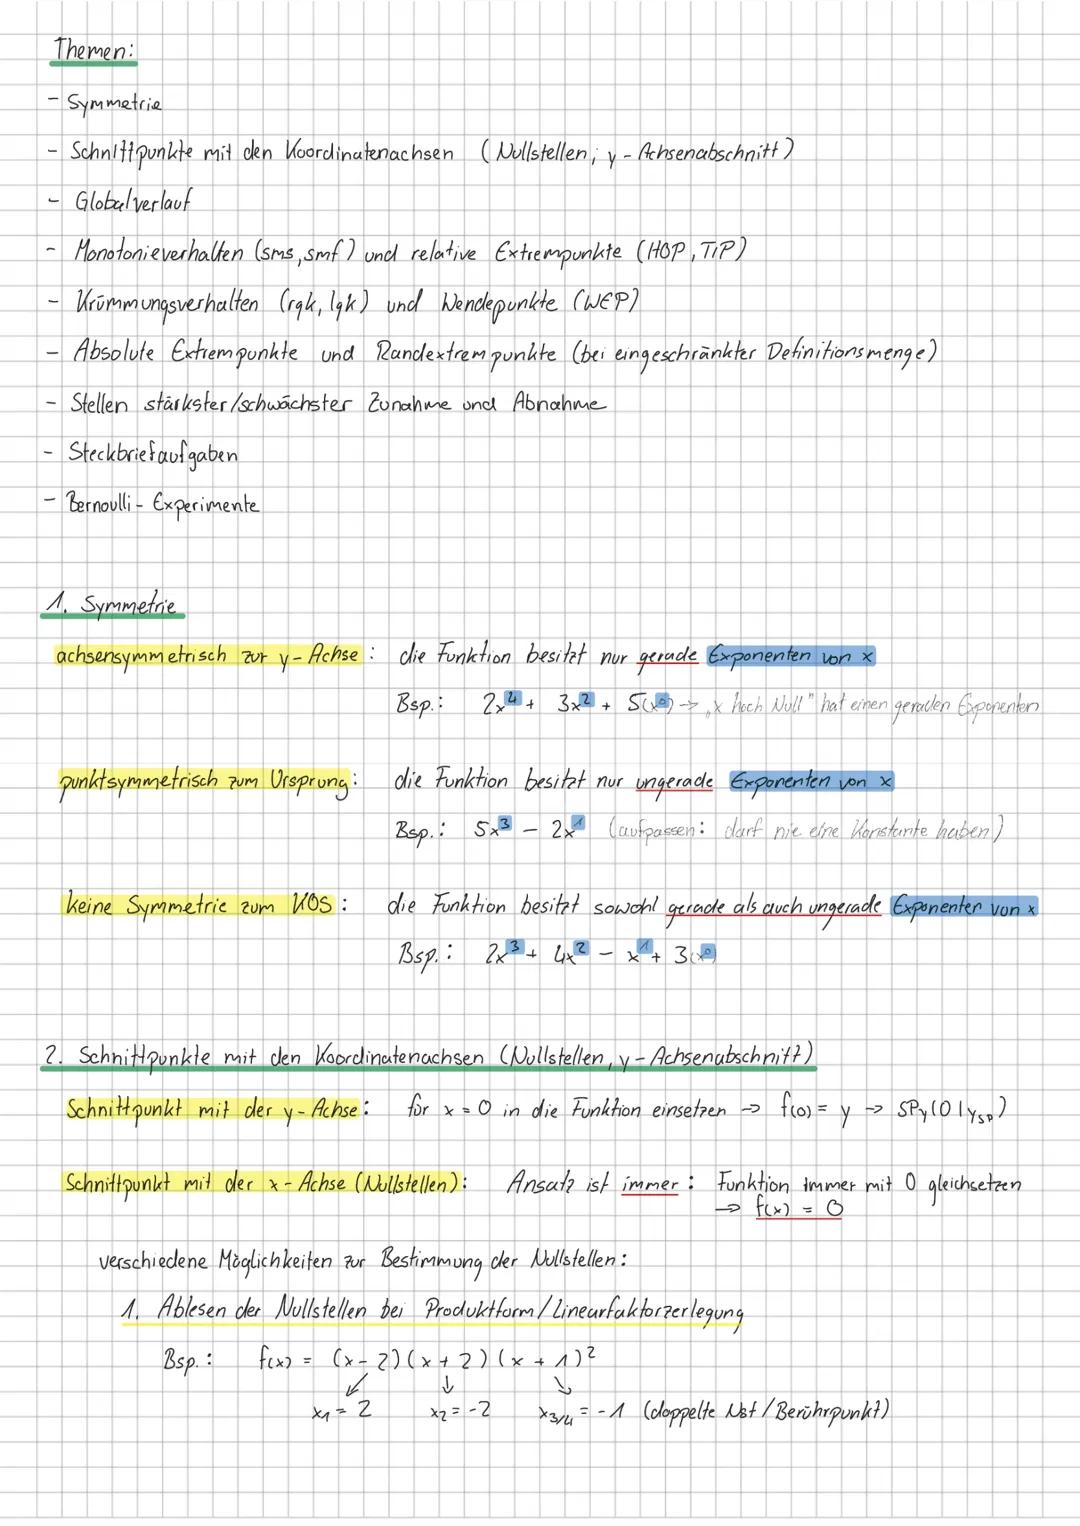 Themen:
- Symmetrie
- Schnittpunkte mit den Koordinatenachsen (Nullstellen; y-Achsenabschnitt)
- Globalverlauf
- Monotonieverhalten (sms, smf) und relative Extrempunkte (HOP, TIP)
- Krümmungsverhalten (rgk, lgk) und Wendepunkte (WEP)
- Absolute Extrempunkte und Randextrempunkte (bei eingeschränkter Definitionsmenge)
- Stellen stärkster/schwächster Zunahme und Abnahme
- Steckbriefaufgaben
- Bernoulli-Experimente
1. Symmetrie
achsensymmetrisch zur y-Achse: die Funktion besitzt nur gerade Exponenten von x
Bsp.: 2x⁴ + 3x² + 5(x⁰) → „x hoch Null" hat einen geraden Exponenten
punktsymmetrisch zum Ursprung: die Funktion besitzt nur ungerade Exponenten von x
Bsp.: 5x³ - 2x¹ (aufpassen: darf nie eine Konstante haben)
keine Symmetrie zum KOS: die Funktion besitzt sowohl gerade als auch ungerade Exponenten von x
Bsp.: 2x³ + 4x² - x¹ + 3(x⁰)
2. Schnittpunkte mit den Koordinatenachsen (Nullstellen, y-Achsenabschnitt)
Schnittpunkt mit der y-Achse: für x = 0 in die Funktion einsetzen → f(0) = y → SPy(0|ySP)
Schnittpunkt mit der x-Achse (Nullstellen): Ansatz ist immer: Funktion immer mit 0 gleichsetzen
→ f(x) = 0
verschiedene Möglichkeiten zur Bestimmung der Nullstellen:
1. Ablesen der Nullstellen bei Produktform/Linearfaktorzerlegung
Bsp.: f(x) = (x-2)(x+2)(x+1)²
x₁ = 2 x₂ = -2 x₃/₄ = -1 (doppelte Nst/Berührpunkt)